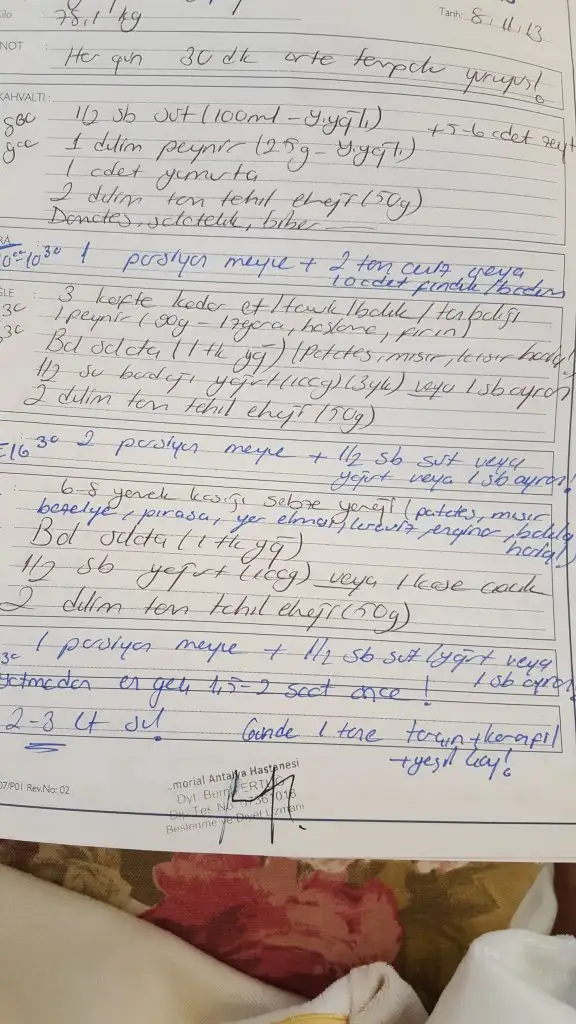 Kilo 78,1 kg
Tarih: 8.11.13
NOT : Her gün 30 dk orta tempolu yürüyüş!
KAHVALTI :
1/2 sb süt (100ml - y.yağlı) +5-6 adet zeyt
1 dilim peynir (25g - y.yağlı)
1 adet yumurta
2 dilim tam tahıl ekmeği (50g)
Domates, salatalık, biber
10⁰⁰-10³⁰ 1 porsiyon meyve + 2 tam ceviz veya
10 adet fındık/badem
3 köfte kadar et/tavuk/balık/ton balığı
/peynir (90g - ızgara, haşlama, fırın)
Bol salata (1 tk yağ) (Patates, mısır, hariç!
1/2 su bardağı yoğurt (100g) (3yk) veya 1 sb ayran
2 dilim tam tahıl ekmeği (50g)
16³⁰ 2 porsiyon meyve + 1/2 sb süt veya
yoğurt veya 1 sb ayran!
6-8 yemek kaşığı sebze yemeği (patates, mısır
bezelye, pırasa, yer elması, kereviz, enginar, bakla
hariç!)
Bol salata (1 tk yağ)
1/2 sb yoğurt (100g) veya 1 kase cacık
2 dilim tam tahıl ekmeği (50g)
1 porsiyon meyve + 1/2 sb süt/yoğurt veya
1 sb ayran
Yatmadan en geç 1,5-2 saat önce!
2-3 Lt su! Günde 1 tane tarçın+karanfil
+yeşil çay!
07/P01 Rev.No: 02
morial Antalya Hastanesi
Dyt.
Dip. Tes. No
Beslenme ve Diyet Uzmanı